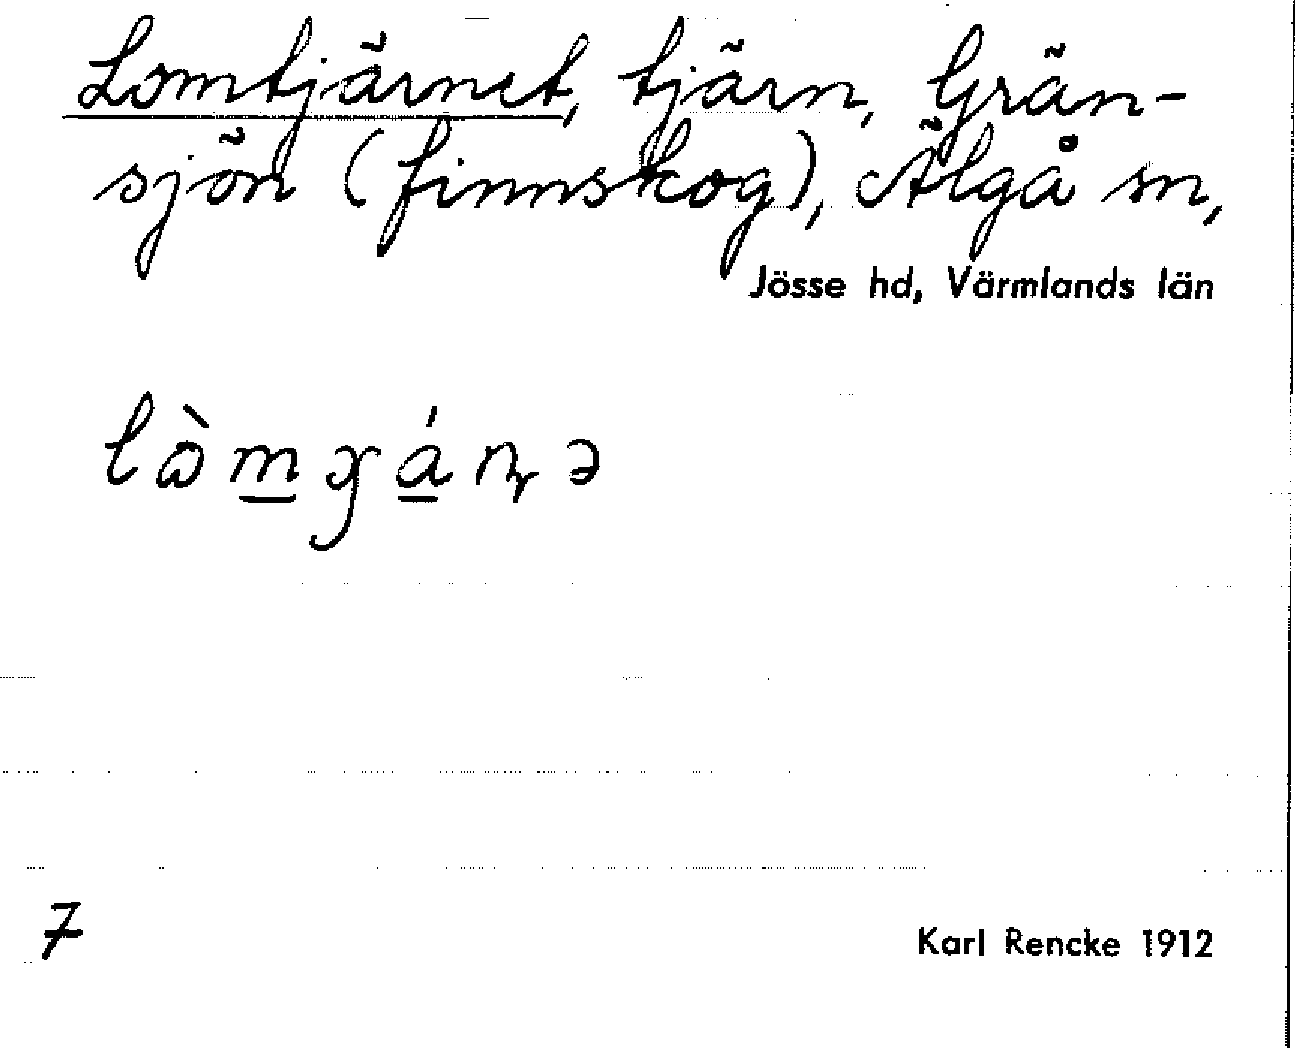 Lomtjärnet, tjärn, Grän-
sjön (finnskog), Älgå sn,
Jösse hd, Värmlands län
7
Karl Rencke 1912